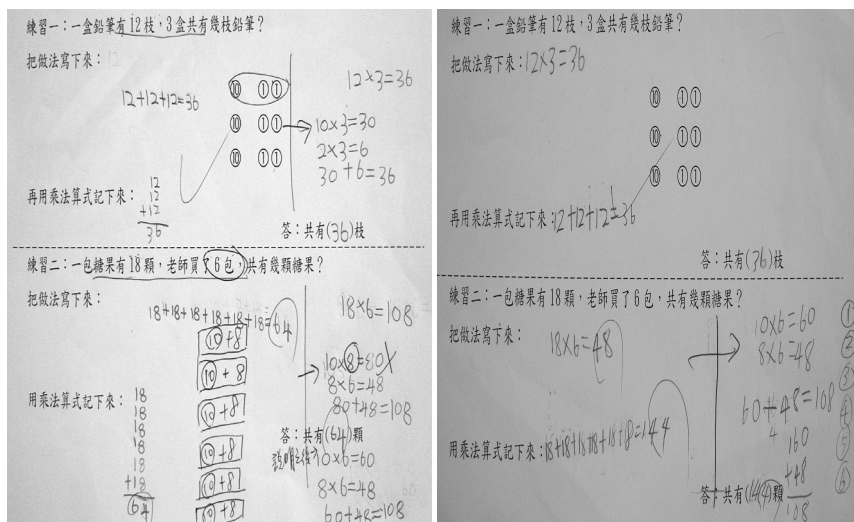 練習一：一盒鉛筆有12枝，3盒共有幾枝鉛筆？
把做法寫下來：
12+12+12=36
⑩ ①①
⑩ ①①
⑩ ①①
12×3=36
10×3=30
2×3=6
30+6=36
再用乘法算式記下來：
12
12
+12
36
答：共有(36)枝
練習二：一包糖果有18顆，老師買了6包，共有幾顆糖果？
把做法寫下來：
18+18+18+18+18+18=64
⑩+8
⑩+8
⑩+8
⑩+8
⑩+8
⑩+8
18×6=108
10×8=80
8×6=48
80+48=108
用乘法算式記下來：
18
18
18
18
18
+18
64
答：共有(64)顆
10×6=60
8×6=48
60+48=108
練習一：一盒鉛筆有12枝，3盒共有幾枝鉛筆？
把做法寫下來：12×3=36
⑩ ①①
⑩ ①①
⑩ ①①
再用乘法算式記下來：12+12+12=36
答：共有(36)枝
練習二：一包糖果有18顆，老師買了6包，共有幾顆糖果？
把做法寫下來：
18×6=48
10×6=60
8×6=48
60+48=108
用乘法算式記下來：18+18+18+18+18+18=144
160
+48
108
答：共有(144)顆
①
②
③
④
⑤
⑥